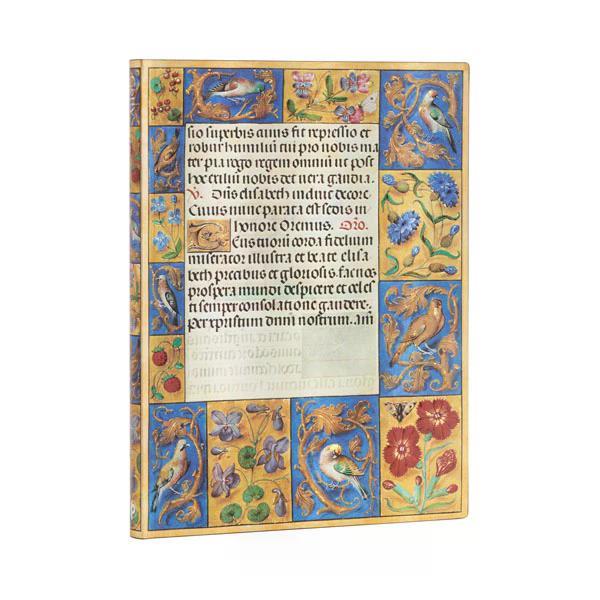 sio superbis cuius fit repressio et
robur humiliũ tu pro nobis ma
ter pia rogo regem omniũ ut post
hoc exiliũ nobis det vera gaudia.
V. Dñs elisabeth induit decore.
Cuius nunc parata est sedis in
honore Oremus. Oro.
Tuorũ corda fidelium
miserator illustra et beate elisa
beth precibus et gloriosis fac nos
prospera mundi despicere et celes
ti semper consolatione gaudere.
Per xpristum dñm nostrum. Am